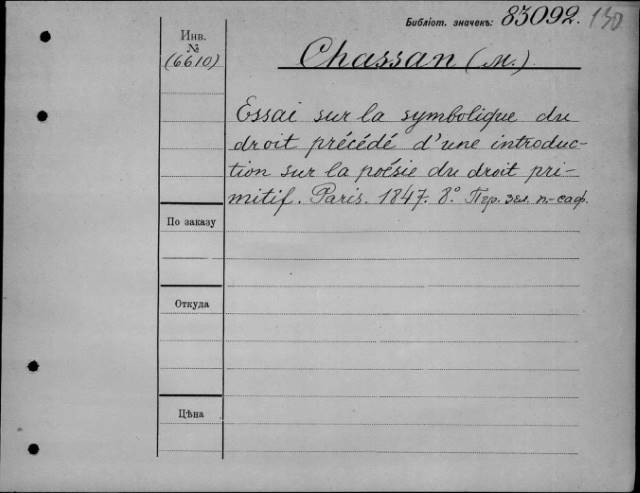 Библіот. значекъ: 83092. 130
Инв.
№
(6610)
Chassan (M.)
Essai sur la symbolique du
droit précédé d'une introduc-
tion sur la poésie du droit pri-
mitif. Paris. 1847. 8° Пер. зел. п.-саф.
По заказу
Откуда
Цѣна